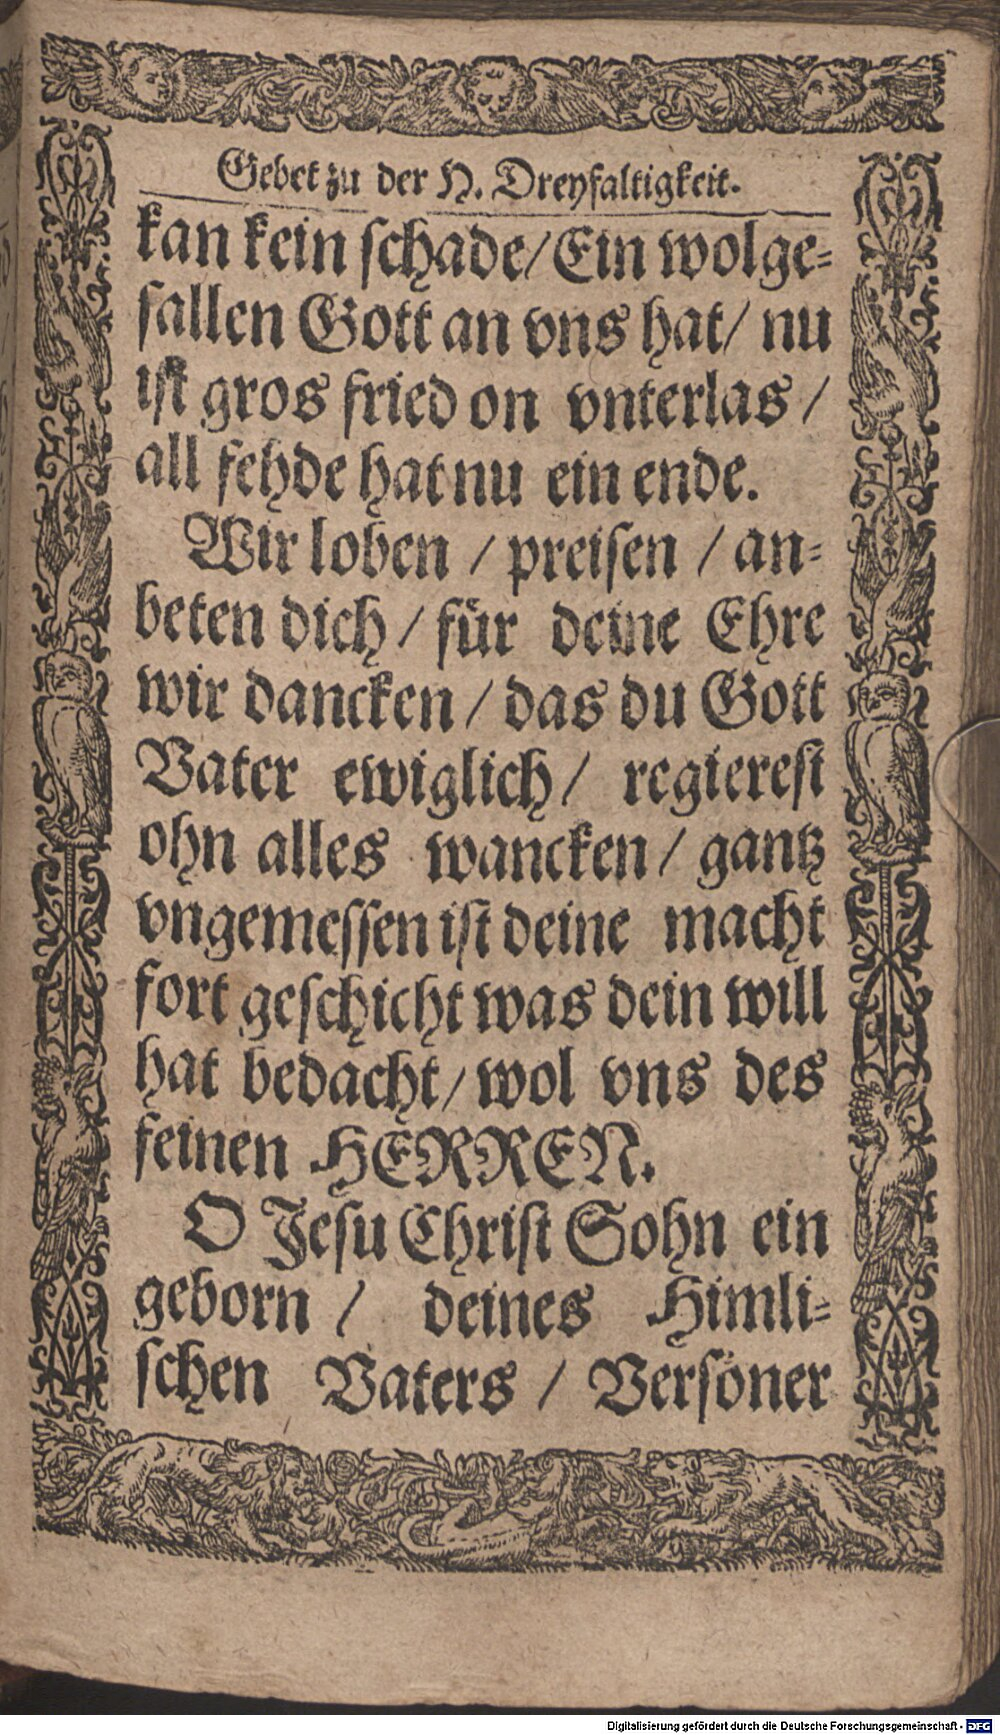 Gebet zu der H. Dreyfaltigkeit.
kan kein schade/ Ein wolge-
fallen Gott an vns hat/ nu
ist gros fried on vnterlas /
all fehde hat nu ein ende.
Wir loben / preisen / an-
beten dich / für deine Ehre
wir dancken / das du Gott
Vater ewiglich / regierest
ohn alles wancken / gantz
vngemessen ist deine macht
fort geschicht was dein will
hat bedacht / wol vns des
feinen HERREN.
O Jesu Christ Sohn ein
geborn / deines Himli-
schen Vaters / Versöner
Digitalisierung gefördert durch die Deutsche Forschungsgemeinschaft - DFG